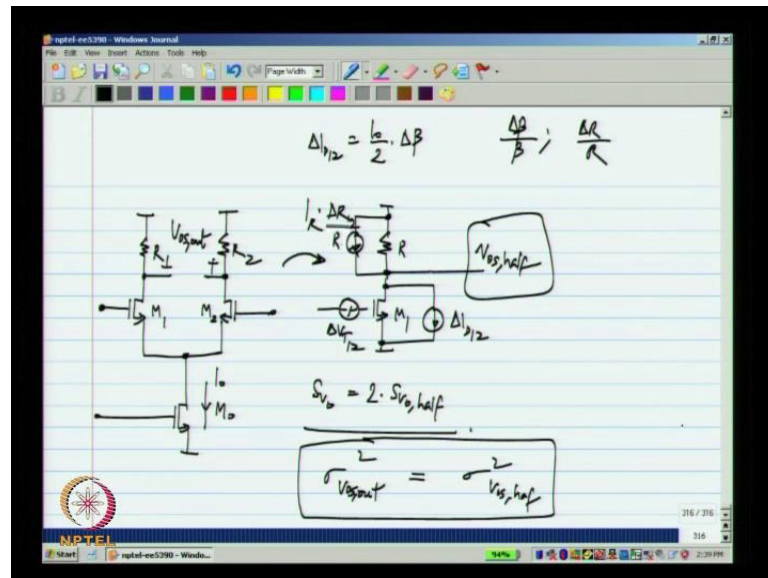 nptel-ee5390 - Windows Journal
File Edit View Insert Actions Tools Help
Page Width
B I
ΔI_D12 = I_0/2 · Δβ    Δβ/β ; ΔR/R
V_OS,out
R_1
R_2
M_1
M_2
I_0
M_0
I_R · ΔR_12/R
R
V_OS,half
ΔV_T12
M_1
ΔI_D12
S_V0 = 2 · S_V0,half
σ²_VOS,out = σ²_VOS,half
316 / 316
316
NPTEL
Start nptel-ee5390 - Windo...
94%
2:39 PM